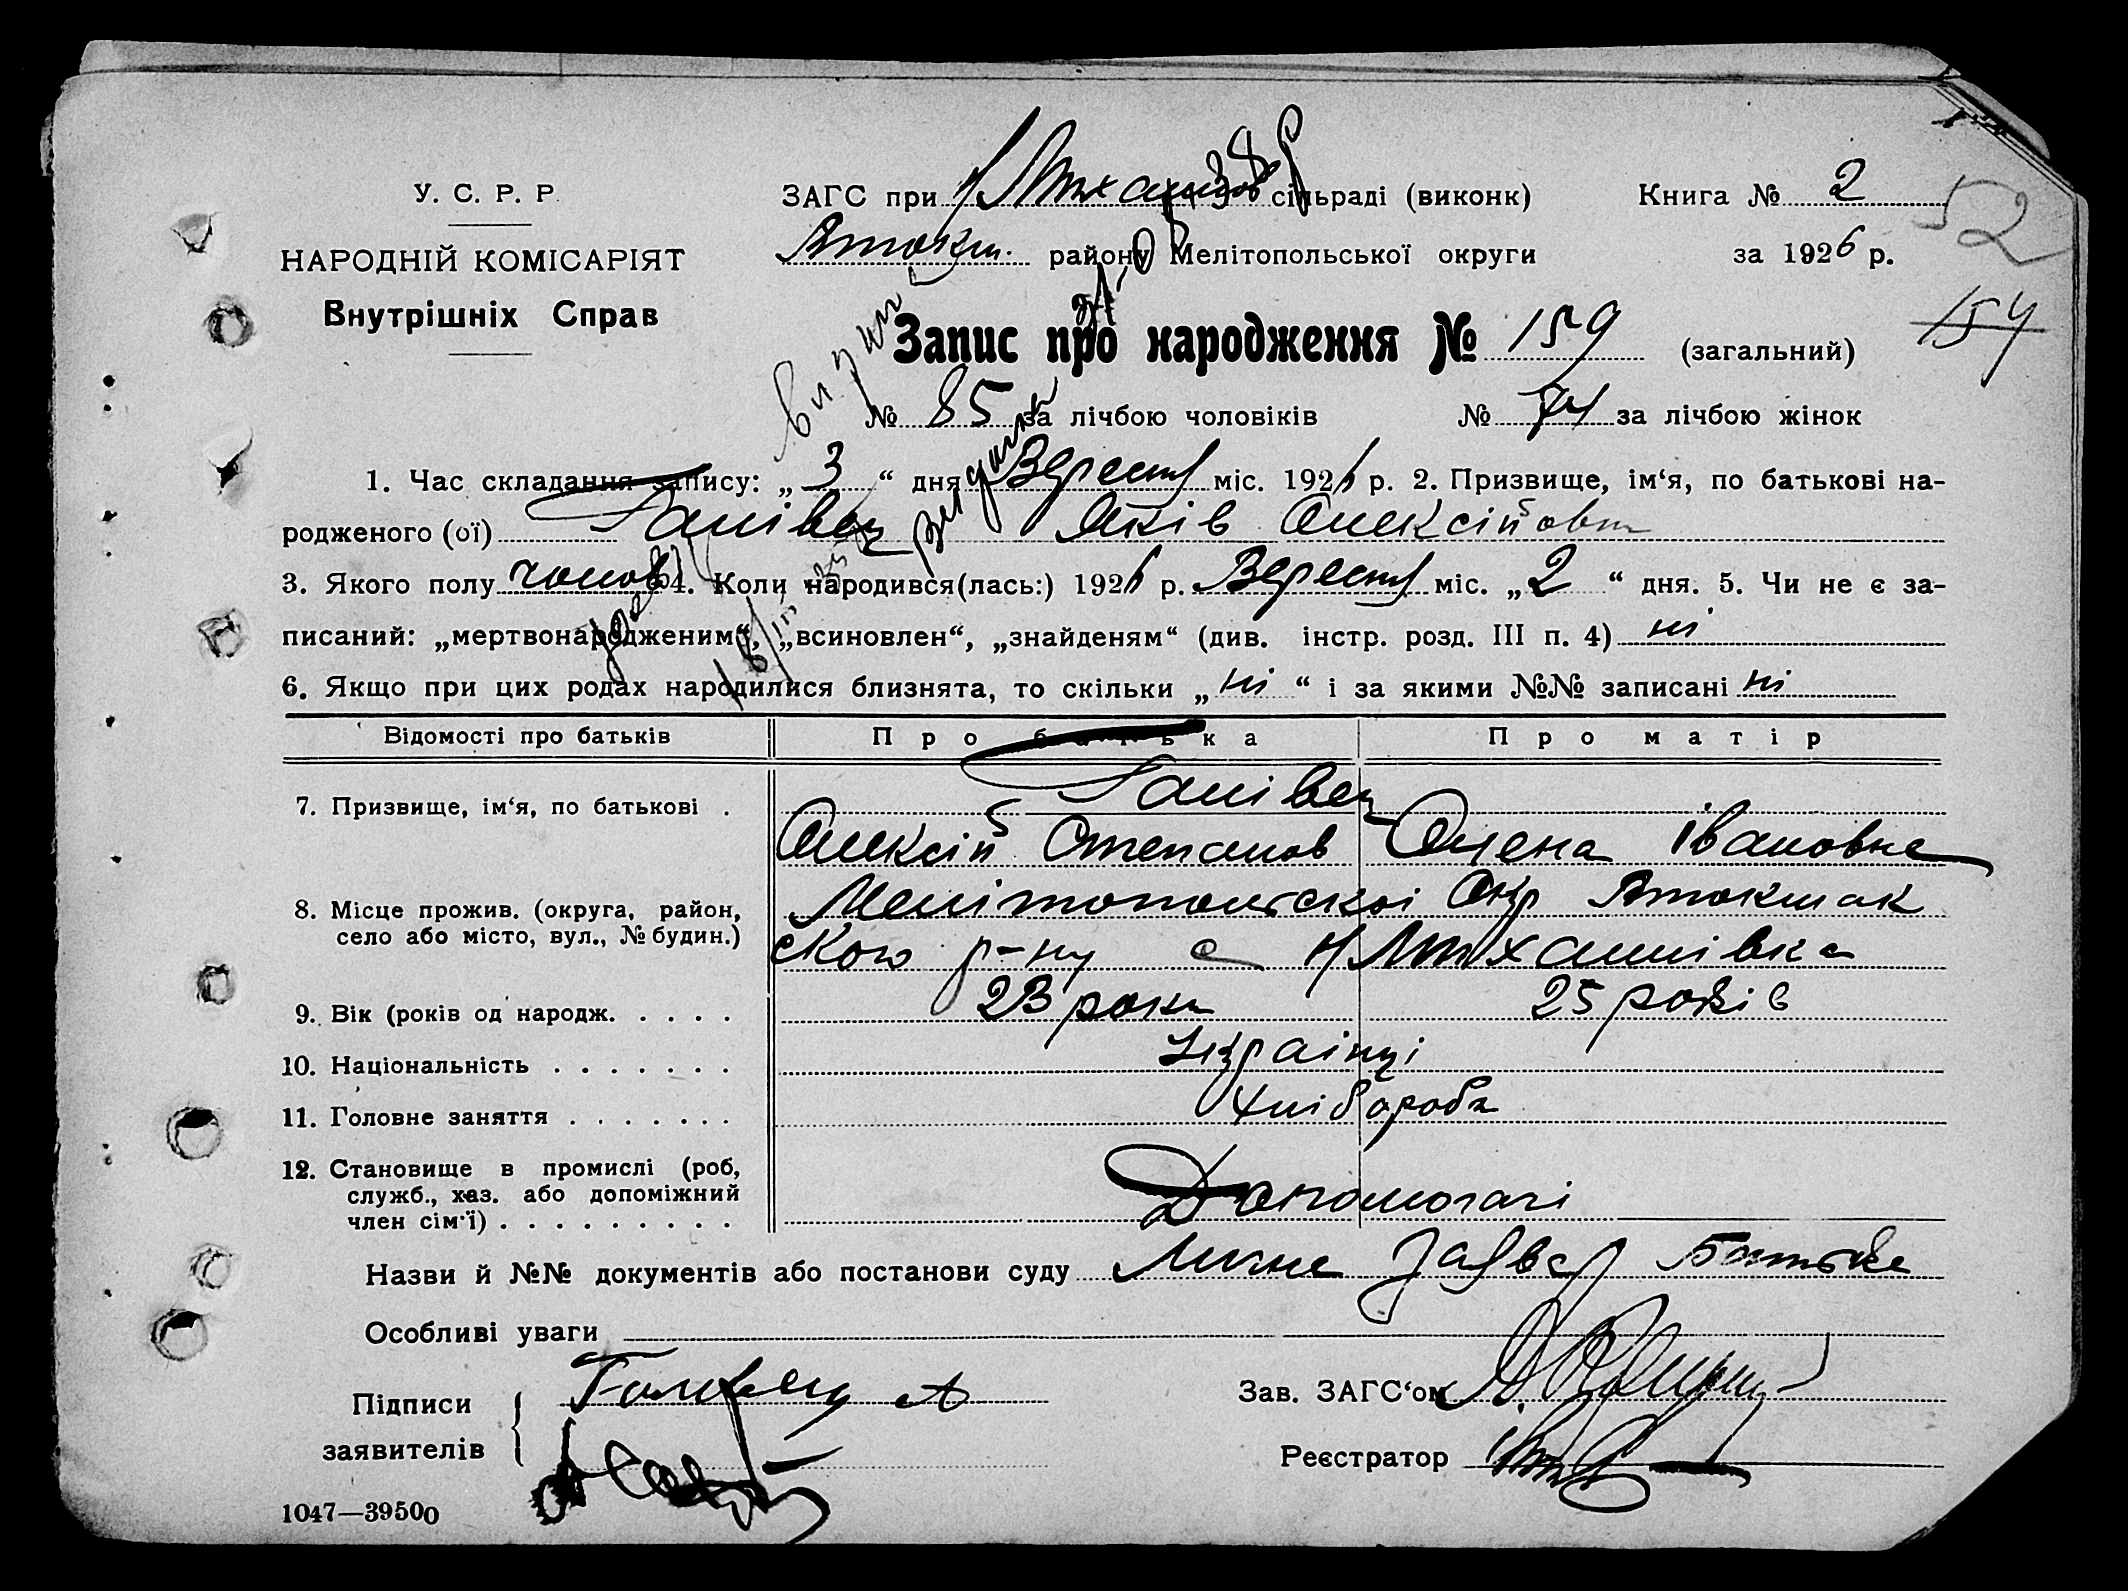 У. С. Р. Р.
НАРОДНІЙ КОМІСАРІЯТ
Внутрішніх Справ
ЗАГС при Н Михайлів сільраді (виконк)
Якимк. району Мелітопольської округи
Книга № 2
за 1926 р.
52
154
Запис про народження № 159 (загальний)
№ 85 за лічбою чоловіків № 74 за лічбою жінок
1. Час складання запису: „ 3 “ дня Вересня міс. 1926 р. 2. Призвище, ім‘я, по батькові на-
родженого (ої) Галівец Яків Олексійови
3. Якого полу чолов 4. Коли народився(лась:) 1926 р. Вересня міс. „ 2 “ дня. 5. Чи не є за-
писаний: „мертвонародженим“, „всиновлен“, „знайденям“ (див. інстр. розд. III п. 4) ні
6. Якщо при цих родах народилися близнята, то скільки „ ні “ і за якими №№ записані ні
Відомості про батьків Про батька Про матір
7. Призвище, ім‘я, по батькові . Галівец
Олексій Степанов Олена Івановна
8. Місце прожив. (округа, район,
село або місто, вул., № будин.)
Мелітопольскоі Окр
ского р-ну с Н Михайлівка
9. Вік (років од народж. . . . . 23 роки 25 років
10. Національність . . . . . . . Українці
11. Головне заняття . . . . . . . Хлібороба
12. Становище в промислі (роб,
служб., хаз. або допоміжний
член сім‘ї) . . . . . . . . . Допомогачі
Назви й №№ документів або постанови суду Лична Заява Батька
Особливі уваги
Підписи
заявителів
Галівец А
Зав. ЗАГС‘ом
Реєстратор
1047—39500